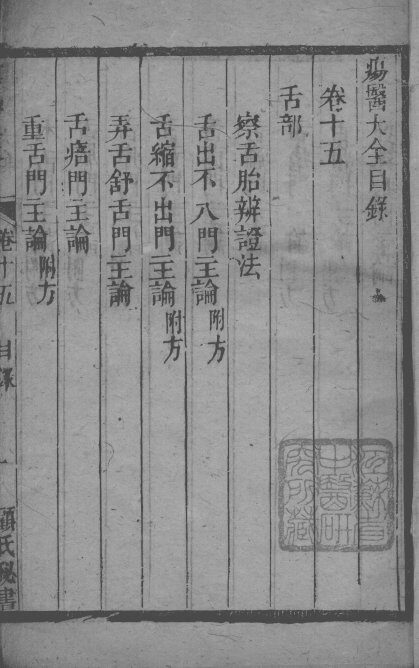 瘍醫大全目錄
卷十五
舌部
察舌胎辨證法
舌出不入門主論附方
舌縮不出門主論附方
弄舌舒舌門主論
舌瘖門主論
重舌門主論附方
卷十五 目錄 一 顧氏秘書
江蘇省中醫研究所藏